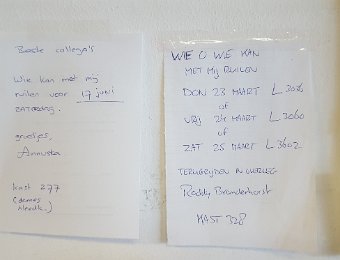 Beste collega's
Wie kan met mij
ruilen voor 17 juni
ZATERDAG.
groetjes,
Annuska
kast 277
(dames
kleedk.)
WIE O WIE KAN
MET MIJ RUILEN
DON 23 MAART L 3026
of
VRIJ 24 MAART L 3060
of
ZAT 25 MAART L 3602
TERUGRIJDEN IN OVERLEG
Roddy Branderhorst
KAST 328